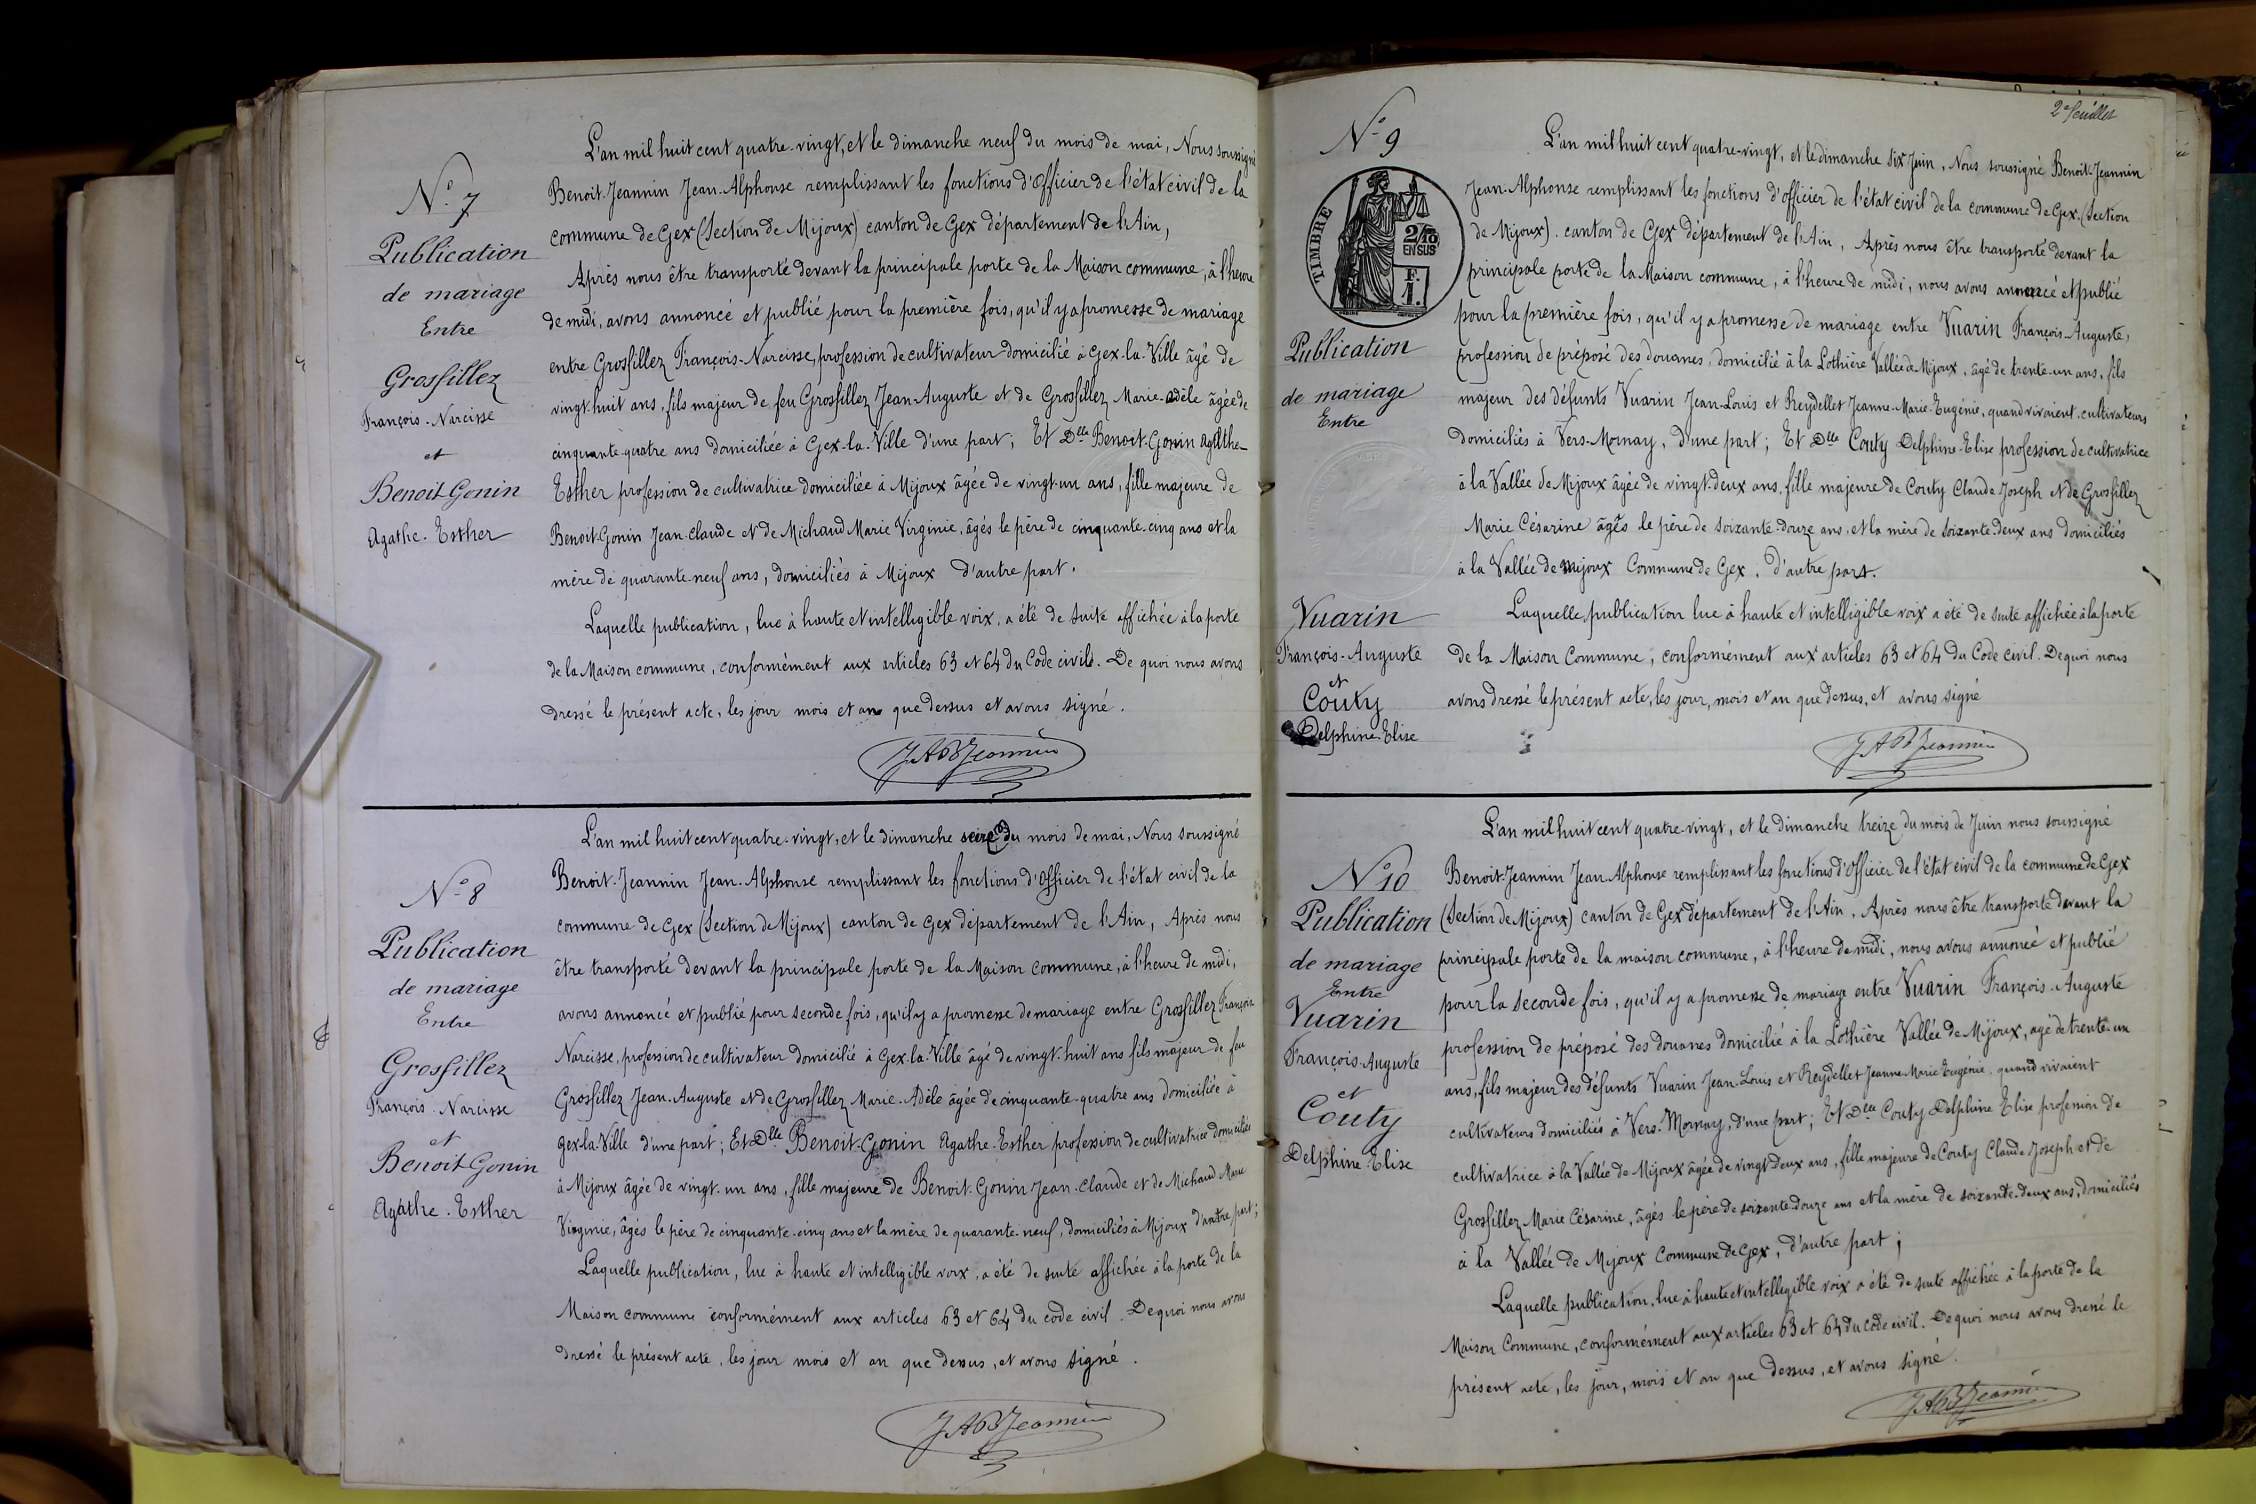 N° 7
Publication
de mariage
Entre
Grosfillez
François-Narcisse
et
Benoit-Gonin
Agathe-Esther
L'an mil huit cent quatre-vingt, et le dimanche neuf du mois de mai, Nous soussigné
Benoit-Jeannin Jean-Alphonse remplissant les fonctions d'Officier de l'état civil de la
commune de Gex (Section de Mijoux) canton de Gex département de l'Ain,
Après nous être transporté devant la principale porte de la Maison commune, à l'heure
de midi, avons annoncé et publié pour la première fois, qu'il y a promesse de mariage
entre Grosfillez François-Narcisse, profession de cultivateur domicilié à Gex-la-Ville âgé de
vingt-huit ans, fils majeur de feu Grosfillez Jean-Auguste et de Grosfillez Marie-Adèle âgée de
cinquante-quatre ans domiciliée à Gex-la-Ville d'une part; Et Dlle Benoit-Gonin Agathe-
Esther profession de cultivatrice domiciliée à Mijoux âgée de vingt-un ans, fille majeure de
Benoit-Gonin Jean-Claude et de Michaud Marie Virginie, âgés le père de cinquante-cinq ans et la
mère de quarante-neuf ans, domiciliés à Mijoux d'autre part.
Laquelle publication, lue à haute et intelligible voix, a été de suite affichée à la porte
de la Maison commune, conformément aux articles 63 et 64 du Code civil. De quoi nous avons
dressé le présent acte, les jour mois et an que dessus et avons signé.
JABJeannin
N° 8
Publication
de mariage
Entre
Grosfillez
François-Narcisse
et
Benoit-Gonin
Agathe-Esther
L'an mil huit cent quatre-vingt, et le dimanche seize du mois de mai, Nous soussigné
Benoit-Jeannin Jean-Alphonse remplissant les fonctions d'Officier de l'état civil de la
commune de Gex (Section de Mijoux) canton de Gex département de l'Ain, Après nous
être transporté devant la principale porte de la Maison commune, à l'heure de midi,
avons annoncé et publié pour seconde fois, qu'il y a promesse de mariage entre Grosfillez François
Narcisse, profession de cultivateur domicilié à Gex-la-Ville âgé de vingt-huit ans fils majeur de feu
Grosfillez Jean-Auguste et de Grosfillez Marie-Adèle âgée de cinquante-quatre ans domiciliée à
Gex-la-Ville d'une part; Et Dlle Benoit-Gonin Agathe-Esther profession de cultivatrice domiciliée
à Mijoux âgée de vingt-un ans, fille majeure de Benoit-Gonin Jean-Claude et de Michaud Marie
Virginie, âgés le père de cinquante-cinq ans et la mère de quarante-neuf, domiciliés à Mijoux d'autre part;
Laquelle publication, lue à haute et intelligible voix, a été de suite affichée à la porte de la
Maison commune conformément aux articles 63 et 64 du code civil. De quoi nous avons
dressé le présent acte, les jour mois et an que dessus, et avons signé.
JABJeannin
2e feuillet
N° 9
TIMBRE
2/10
EN SUS
F.
1.
Publication
de mariage
Entre
Vuarin
François-Auguste
et
Couty
Delphine-Elise
L'an mil huit cent quatre-vingt, et le dimanche six Juin, Nous soussigné Benoit-Jeannin
Jean-Alphonse remplissant les fonctions d'officier de l'état civil de la commune de Gex (Section
de Mijoux). canton de Gex département de l'Ain, Après nous être transporté devant la
principale porte de la Maison commune, à l'heure de midi, nous avons annoncé et publié
pour la première fois, qu'il y a promesse de mariage entre Vuarin François-Auguste,
profession de préposé des douanes, domicilié à la Lothière Vallée de Mijoux, âgé de trente-un ans, fils
majeur des défunts Vuarin Jean-Louis et Reydellet Jeanne-Marie-Eugénie, quand vivaient, cultivateurs
domiciliés à Vers-Mornay, d'une part; Et Dlle Couty Delphine-Elise profession de cultivatrice
à la Vallée de Mijoux âgée de vingt-deux ans, fille majeure de Couty Claude Joseph et de Grosfillez
Marie Césarine âgés le père de soixante-douze ans, et la mère de soixante-deux ans domiciliés
à la Vallée de Mijoux Commune de Gex, d'autre part.
Laquelle publication lue à haute et intelligible voix a été de suite affichée à la porte
de la Maison Commune, conformément aux articles 63 et 64 du Code civil. De quoi nous
avons dressé le présent acte, les jour, mois et an que dessus, et avons signé
JABJeannin
N° 10
Publication
de mariage
Entre
Vuarin
François-Auguste
et
Couty
Delphine-Elise
L'an mil huit cent quatre-vingt, et le dimanche treize du mois de Juin nous soussigné
Benoit-Jeannin Jean-Alphonse remplissant les fonctions d'Officier de l'état civil de la commune de Gex
(Section de Mijoux) canton de Gex département de l'Ain. Après nous être transporté devant la
principale porte de la maison commune, à l'heure de midi, nous avons annoncé et publié
pour la seconde fois, qu'il y a promesse de mariage entre Vuarin François-Auguste
profession de préposé des douanes domicilié à la Lothière Vallée de Mijoux, âgé de trente-un
ans, fils majeur des défunts Vuarin Jean-Louis et Reydellet Jeanne-Marie Eugénie, quand vivaient
cultivateurs domiciliés à Vers-Mornay, d'une part; Et Dlle Couty Delphine Elise profession de
cultivatrice à la Vallée de Mijoux âgée de vingt-deux ans, fille majeure de Couty Claude Joseph et de
Grosfillez Marie Césarine, âgés le père de soixante-douze ans et la mère de soixante-deux ans, domiciliés
à la Vallée de Mijoux Commune de Gex, d'autre part;
Laquelle publication, lue à haute et intelligible voix a été de suite affichée à la porte de la
Maison Commune, conformément aux articles 63 et 64 du code civil. De quoi nous avons dressé le
présent acte, les jour, mois et an que dessus, et avons signé.
JABJeannin